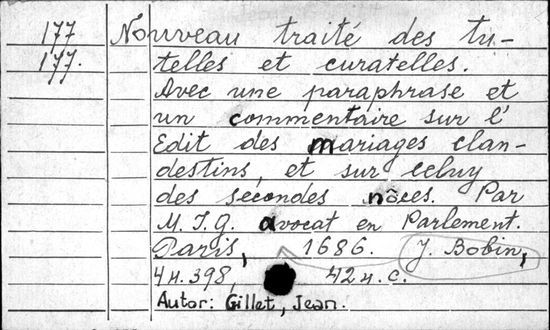 177 Nouveau traité des tu-
177. telles et curatelles.
Avec une paraphrase et
un commentaire sur l'
Edit des mariages clan-
destins, et sur celuy
des secondes nôces. Par
M. J. G. avocat en Parlement.
Paris, 1686. J. Bobin,
4 н. 398, 42 н. с.
Autor: Gillet, Jean.